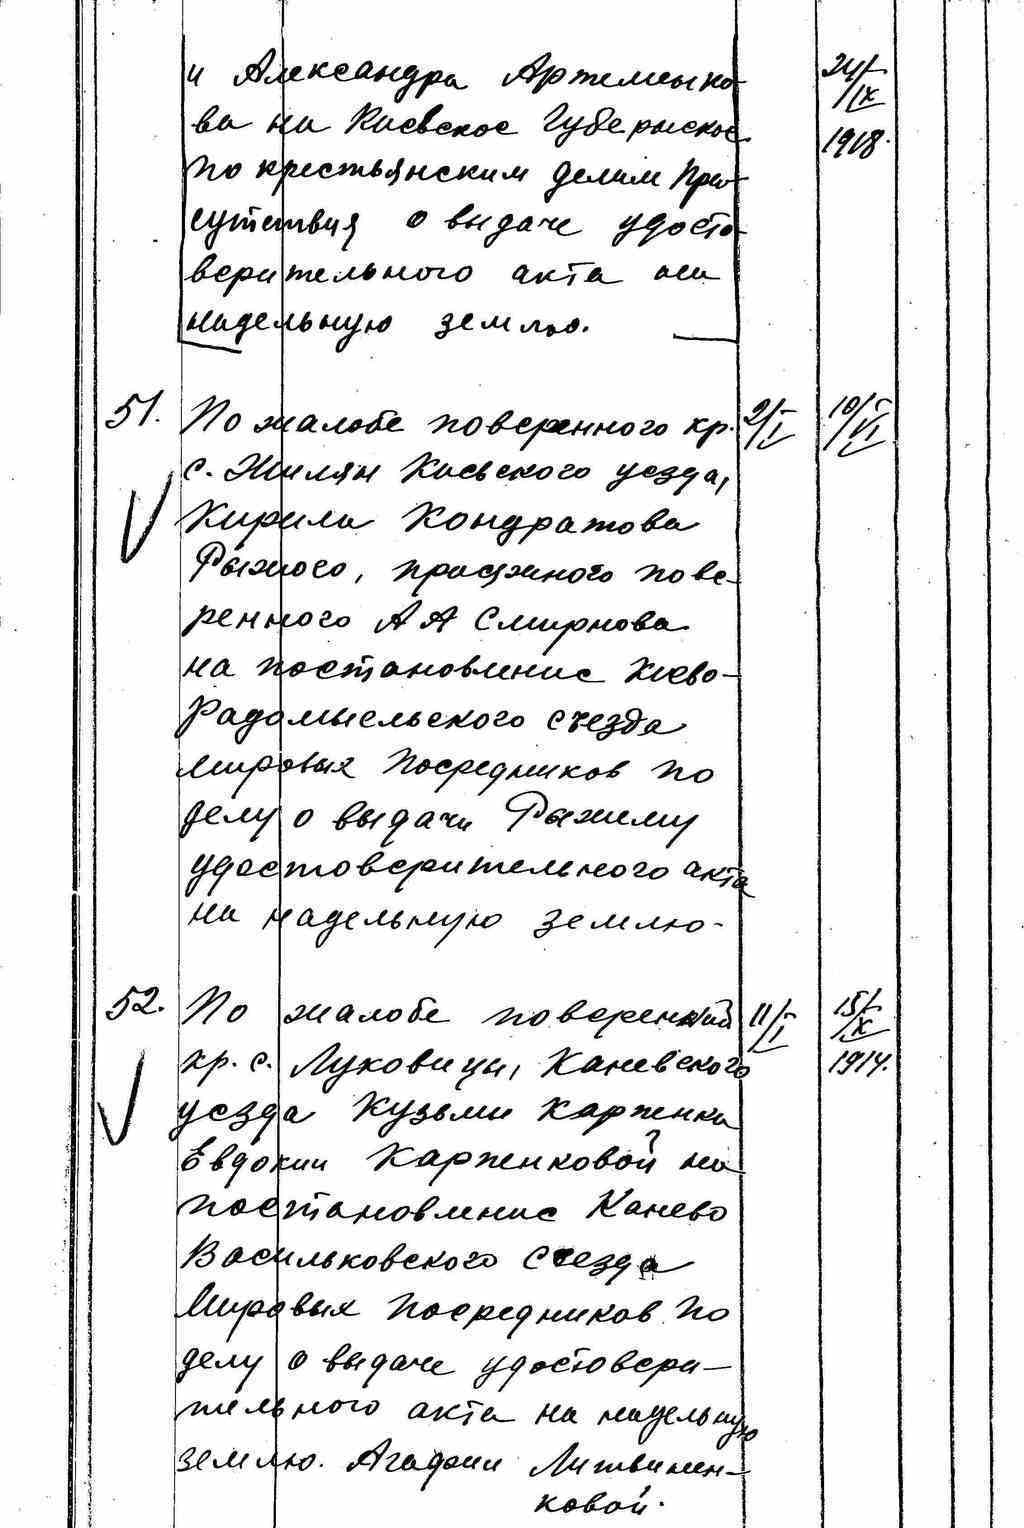 и Александра Артемьико-
ва на Киевское Губернское
по крестьянским делам При-
сутствия о выдаче удосто-
верительного акта на
надельную землю.
24/IX
1918.
51. По жалобе поверенного кр. 2/I 10/VI
с. Жилян Киевского уезда,
Кирила Кондратова
Рыжого, присяжного пове-
ренного А А Смирнова
на постановление Киево-
Радомысльского съезда
мировых Посредников по
делу о выдачи Рыжему
удостоверительного акта
на надельную землю-
52. По жалобе поверенный 11/I 15/X
кр. с. Луковицы, Каневского 1914.
уезда Кузьми Карженка
Евдокии Карженковой на
постановление Канево
Васильковского съезда
Мировых Посредников по
делу о выдаче удостовери-
тельного акта на надельную
землю. Агафии Литвинен-
ковой.